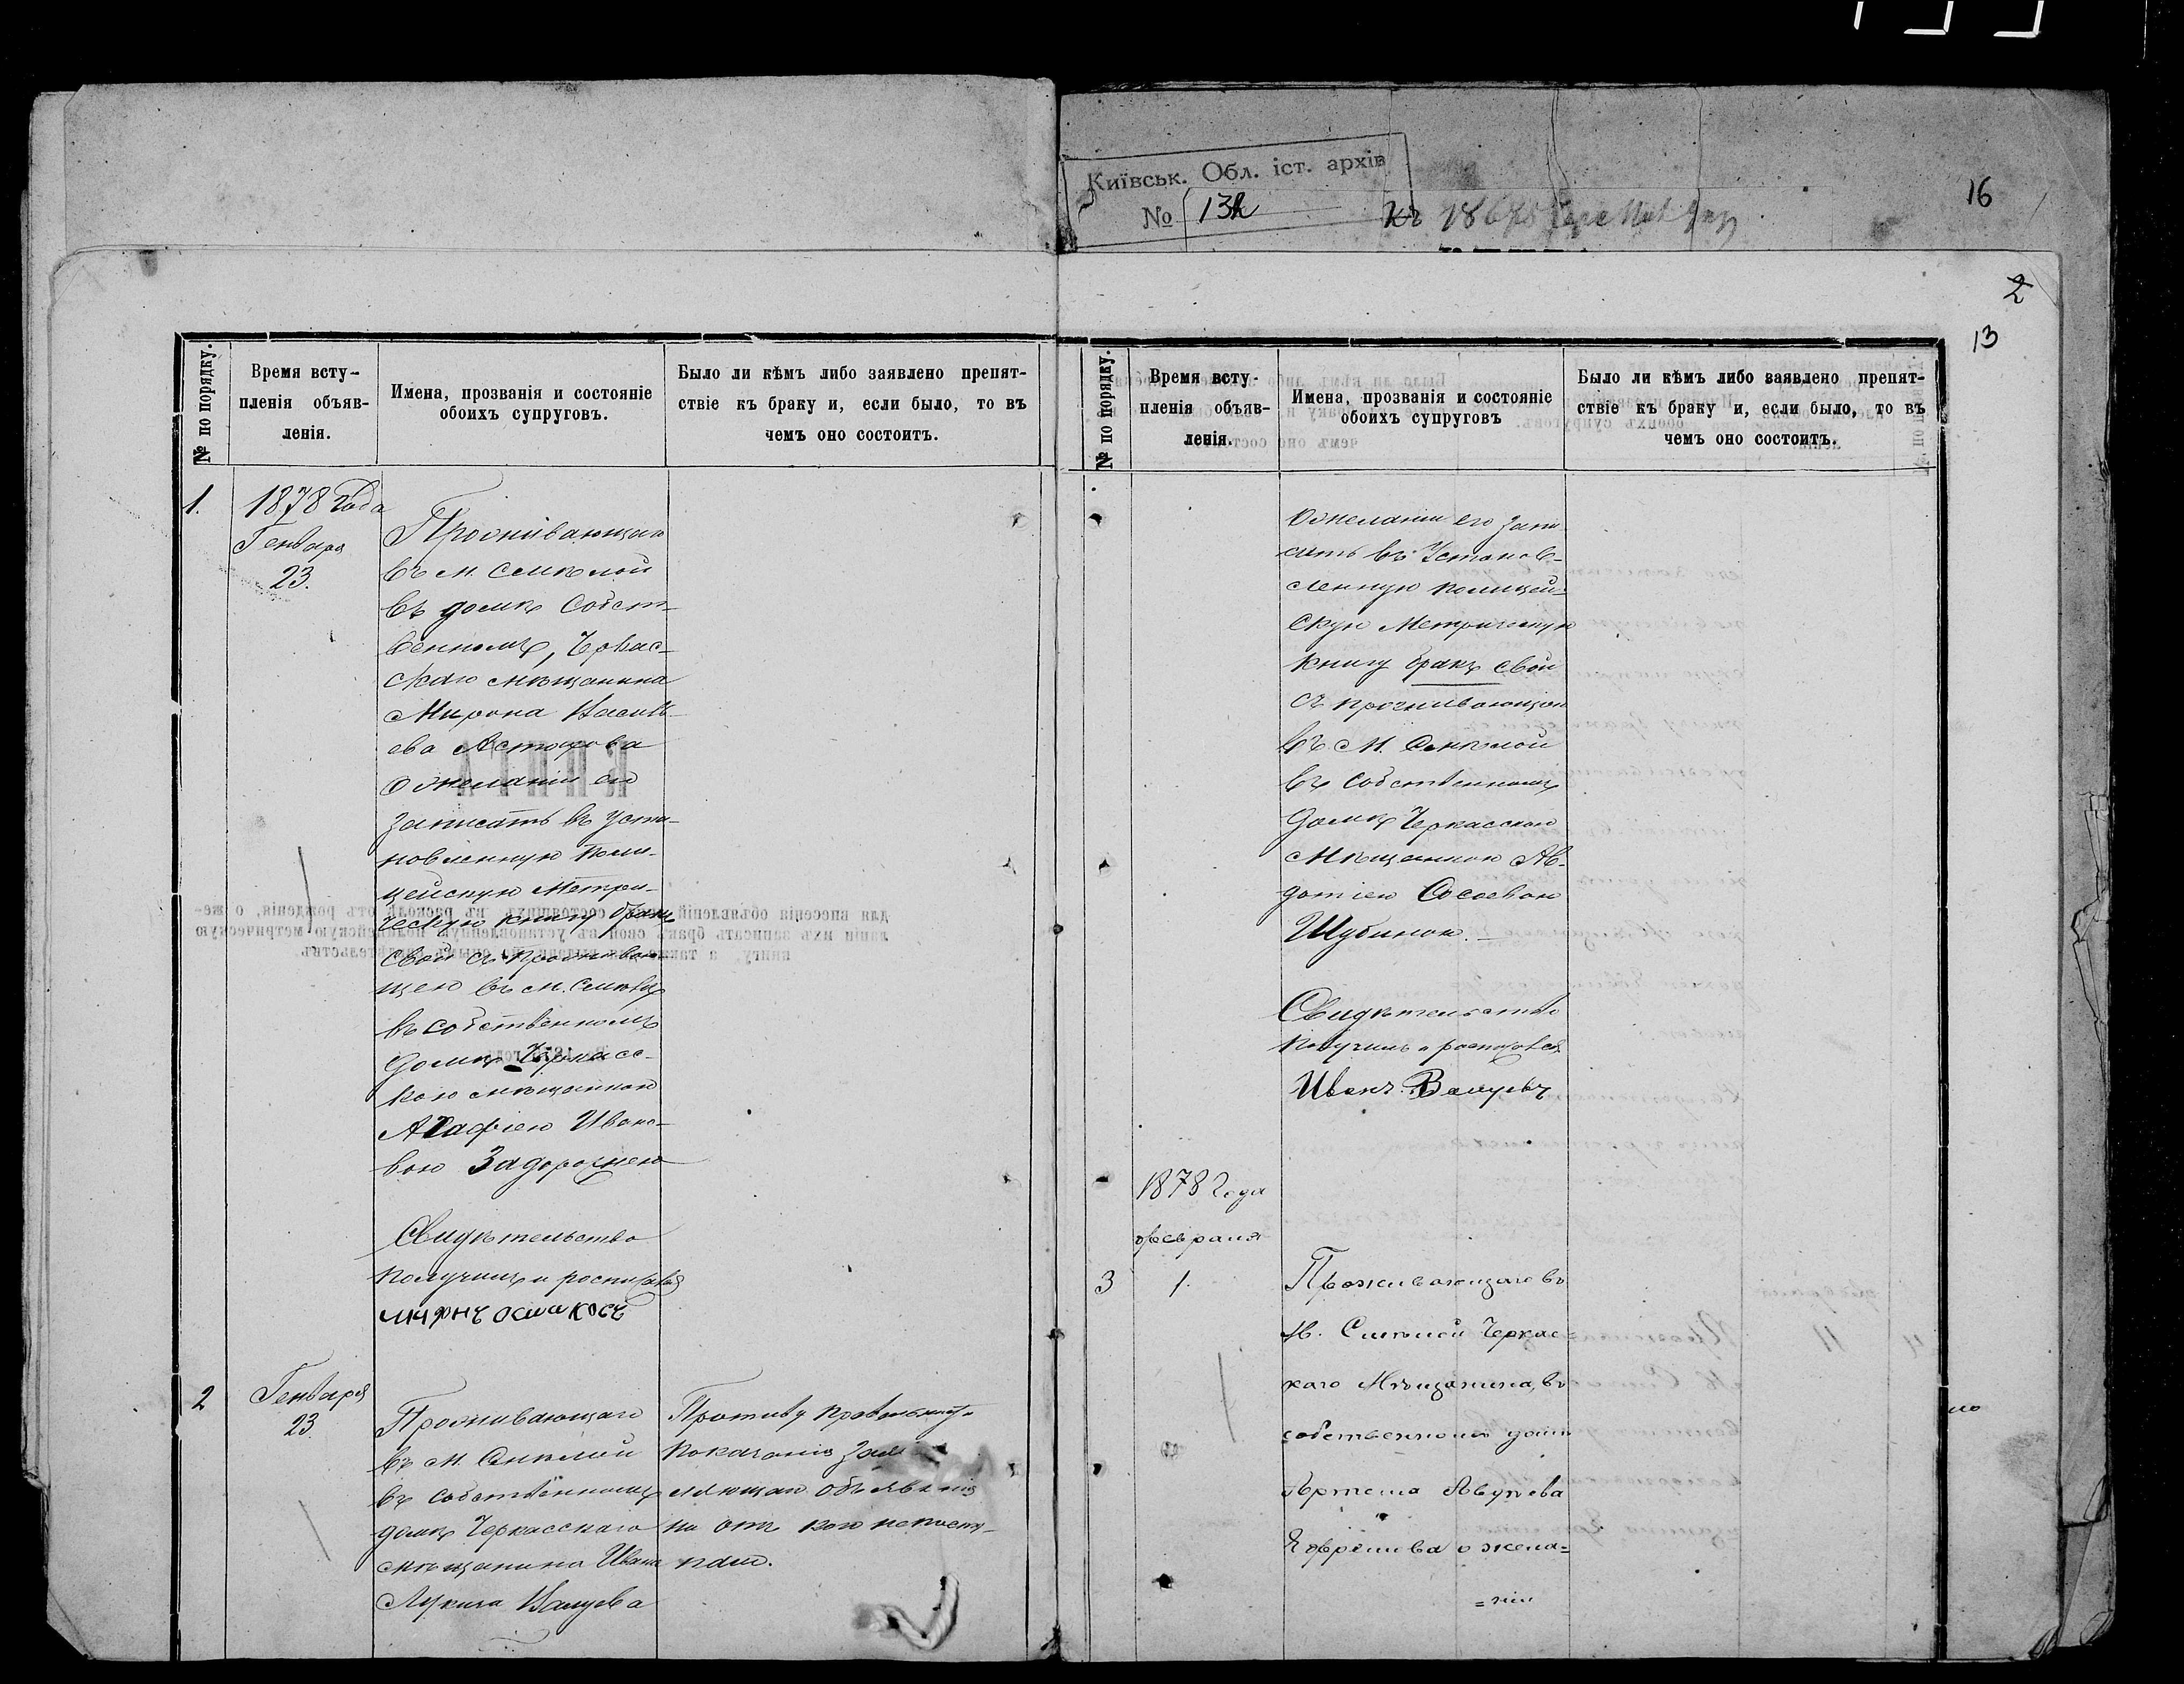 Київськ. Обл. іст. архів
№ 132
16
2
13
№ по порядку.
Время всту-
пленія объяв-
ленія.
Имена, прозванія и состояніе
обоихъ супруговъ.
Было ли кѣмъ либо заявлено препят-
ствіе къ браку и, если было, то въ
чемъ оно состоитъ.
1.
1878 года
Генваря
23.
Проживающаго
въ м. Смѣлой
въ домѣ собст-
венномъ, Черкас-
скаго мѣщанина
Мирона Василь-
ева
о желаніи его
записать въ уста-
новленную поли-
цейскую метри-
ческую книгу бракъ
свой съ проживаю-
щею въ м. Смѣлой
въ собственномъ
домѣ Черкасс-
кою мѣщанкою
Агафіею Ивано-
вою Задорожнею
Свидѣтельство
получилъ и росписался
2
Генваря
23.
Проживающаго
въ м. Смѣлой
въ собственномъ
домѣ Черкасскаго
мѣщанина Ивана
Лукича Валуева
Противу правильности
показанія
объявленія
ни отъ кого не посту-
пало.
№ по порядку.
Время всту-
пленія объяв-
ленія.
Имена, прозванія и состояніе
обоихъ супруговъ
Было ли кѣмъ либо заявлено препят-
ствіе къ браку и, если было, то въ
чемъ оно состоитъ.
о желаніи его запи-
сать въ установ-
ленную полицей-
скую метрическую
книгу бракъ свой
съ проживающею
въ м. Смѣлой
въ собственномъ
домѣ Черкасскою
мѣщанкою Ав-
дотіею
Шубиною.
Свидѣтельство
получилъ и росписался
Иванъ Валуевъ
1878 года
февраля
3
1.
Проживающаго въ
м. Смѣлой Черкас=
каго мѣщанина, въ
собственномъ домѣ
Артема
Ефремова о жела=
=ніи